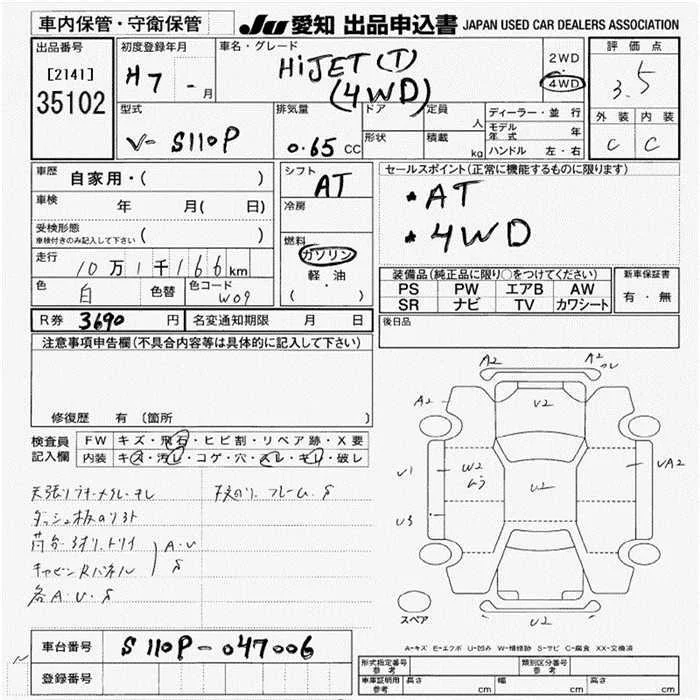 車内保管・守衛保管
JU 愛知 出品申込書 JAPAN USED CAR DEALERS ASSOCIATION
出品番号
[2141]
35102
初度登録年月
H7 - 月
車名・グレード
HiJET (T)
(4WD)
2WD
4WD
評価点
3.5
型式
V- S110P
排気量
0.65 CC
ドア
形状
定員
人
積載
kg
ディーラー・並行
モデル年式 年
ハンドル 左・右
外装
C
内装
C
車歴
自家用・( )
車検
年 月( 日)
受検形態
車検付きのみ記入して下さい ( )
走行
10万1千166km
色
白
色替
色コード
W09
シフト
AT
冷房
燃料
ガソリン
軽油
( ・ )
セールスポイント(正常に機能するものに限ります)
* AT
* 4WD
装備品(純正品に限り○をつけてください)
PS PW エアB AW
SR ナビ TV カワシート
新車保証書
有・無
R券 3690 円
名変通知期限 月 日
後日品
注意事項申告欄(不具合内容等は具体的に記入して下さい)
修復歴 有 〔箇所
検査員記入欄
FW キズ・飛石・ヒビ割・リペア跡・X要
内装 キズ・汚レ・コゲ・穴・スレ・キレ・破レ
ダッシュ板
A・U
S
各A・U・S
A2
A2
A2
V2
U1
W2
ムラ
U2
UA2
U3
U2
スペア
A-キズ E-エクボ U-凹み W-補修跡 S-サビ C-腐食 XX-交換済
車台番号
S110P-047006
登録番号
形式指定番号
参考
類別区分番号
参考
車庫証明用
参考
長さ cm
幅 cm
高さ cm